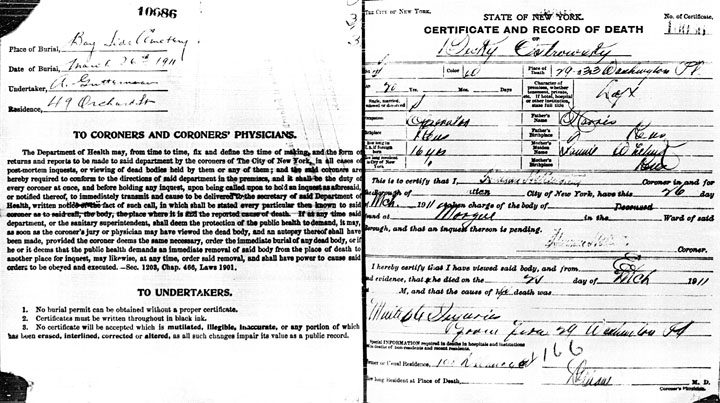 10686
Place of Burial, Bay Side Cemetery
Date of Burial, March 26th 1911
Undertaker, A. Gutterman
Residence, 49 Orchard St
TO CORONERS AND CORONERS' PHYSICIANS.
The Department of Health may, from time to time, fix and define the time of making, and the form of
returns and reports to be made to said department by the coroners of The City of New York, in all cases of
post-mortem inquests, or viewing of dead bodies held by them or any of them; and the said coroners are
hereby required to conform to the directions of said department in the premises, and it shall be the duty of
every coroner at once, and before holding any inquest, upon being called upon to hold an inquest as aforesaid,
or notified thereof, to immediately transmit and cause to be delivered to the secretary of said Department of
Health, written notice of the fact of such call, in which shall be stated every particular then known to said
coroner as to said call, the body, the place where it is and the reported cause of death. If at any time said
department, or the sanitary superintendent, shall deem the protection of the public health to demand, it may,
as soon as the coroner's jury or physician may have viewed the dead body, and an autopsy thereof shall have
been made, provided the coroner deems the same necessary, order the immediate burial of any dead body, or if
he or it deems that the public health demands an immediate removal of said body from the place of death to
another place for inquest, may likewise, at any time, order said removal, and shall have power to cause said
orders to be obeyed and executed. —Sec. 1203, Chap. 466, Laws 1901.
TO UNDERTAKERS.
1. No burial permit can be obtained without a proper certificate.
2. Certificates must be written throughout in black ink.
3. No certificate will be accepted which is mutilated, illegible, inaccurate, or any portion of which
has been erased, interlined, corrected or altered, as all such changes impair its value as a public record.
The City of New York.
STATE OF NEW YORK.
No. of Certificate,
CERTIFICATE AND RECORD OF DEATH
OF
Ostrowsky
Color
Place of Death 29-033 Washington Pl
20 Yrs. Mos. Days
Character of premises, whether tenement, private, etc. If hotel, hospital or other institution, state full title
Loft
Operator
Father's Name Morris
Birthplace Rus
Father's Birthplace Rus
Mother's Name
Mother's
This is to certify that I, Coroner in and for
City of New York, have this 26 day
Mch 1911 charge of the body of Deceased
found at Morgue in the Ward of said
borough, and that an inquest thereon is pending.
Coroner.
I hereby certify that I have viewed said body, and from
and evidence, that he died on the 25 day of Mch 1911
M, and that the cause of his death was
Multiple Injuries
from 29 Washington Pl
Special INFORMATION required in deaths in hospitals and institutions
and in deaths of non-residents and recent residents.
Former or Usual Residence, 166
How long Resident at Place of Death, M. D.
Coroner's Physician.